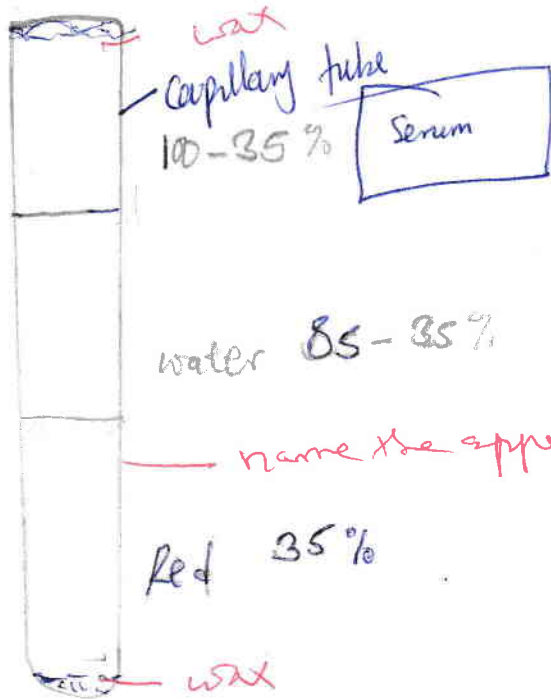 wax
Capillary tube
100-35%
Serum
water 85-35%
name the appe
Red 35%
wax